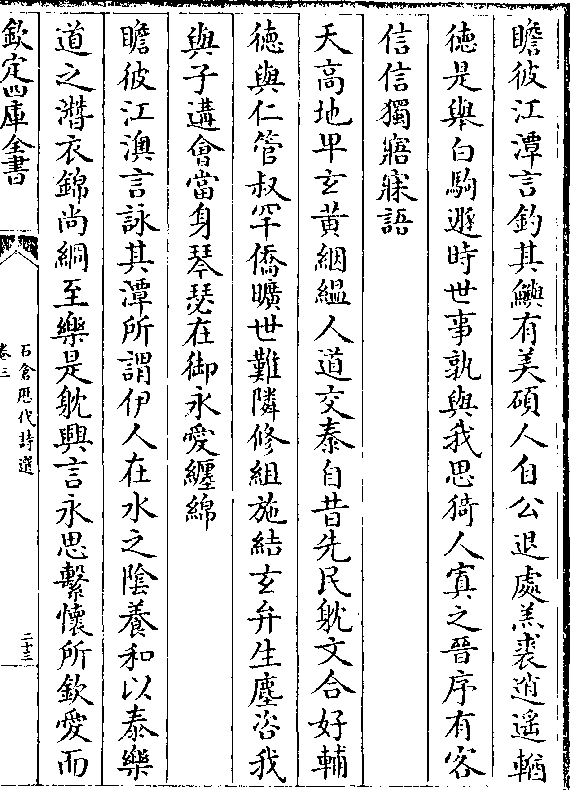 瞻彼江潭言釣其鱮有美碩人自公退處羔裘逍遥輶
徳是舉白駒遯時世事孰與我思猗人寘之晉序有客
信信獨寤寐語
天高地卑玄黄絪緼人道交泰自昔先民躭文合好輔
徳與仁管叔罕僑曠世難隣修組施結玄弁生塵咨我
與子遘會當身琴瑟在御永愛纒綿
瞻彼江澳言詠其潭所謂伊人在水之隂養和以泰樂
道之濳衣錦尚絅至樂是躭興言永思繫懷所欽愛而
欽定四庫全書
石倉歴代詩選
卷三
二十三